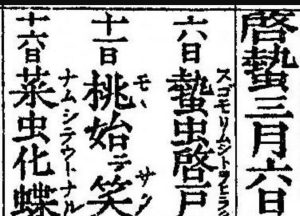 啓蟄三月六日
六日蟄虫啓戸
スゴモリムシトヲヒラ
十一日桃始テ笑
モヽ サ
十六日菜虫化蝶
ナムシテウトナル